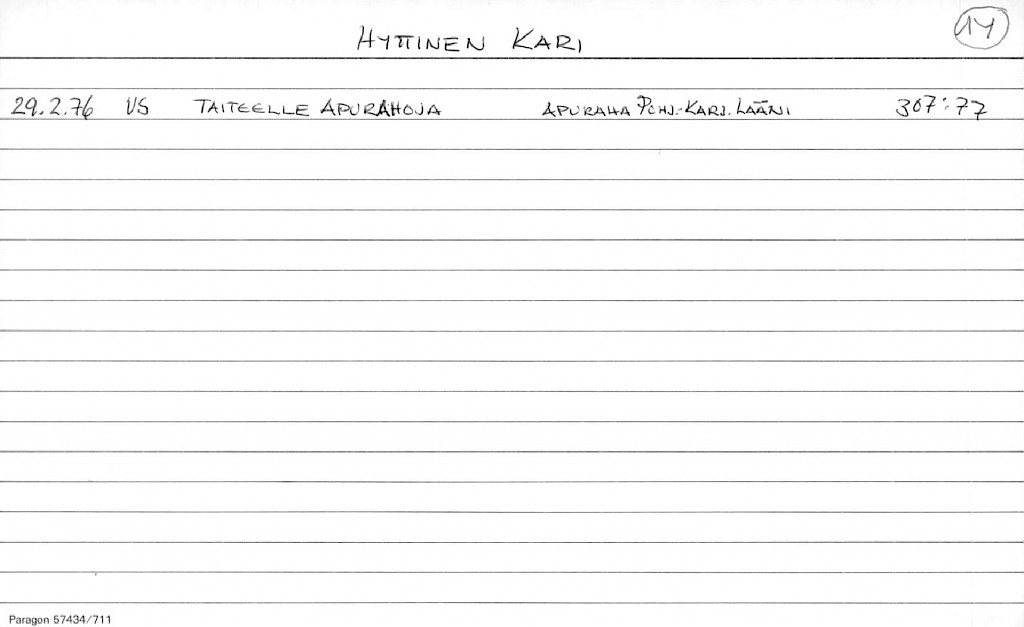 HYTTINEN KARI
14
29.2.76 VS TAITEELLE APURAHOJA APURAHA POHJ.-KARJ. LÄÄNI 307:77
Paragon 57434/711